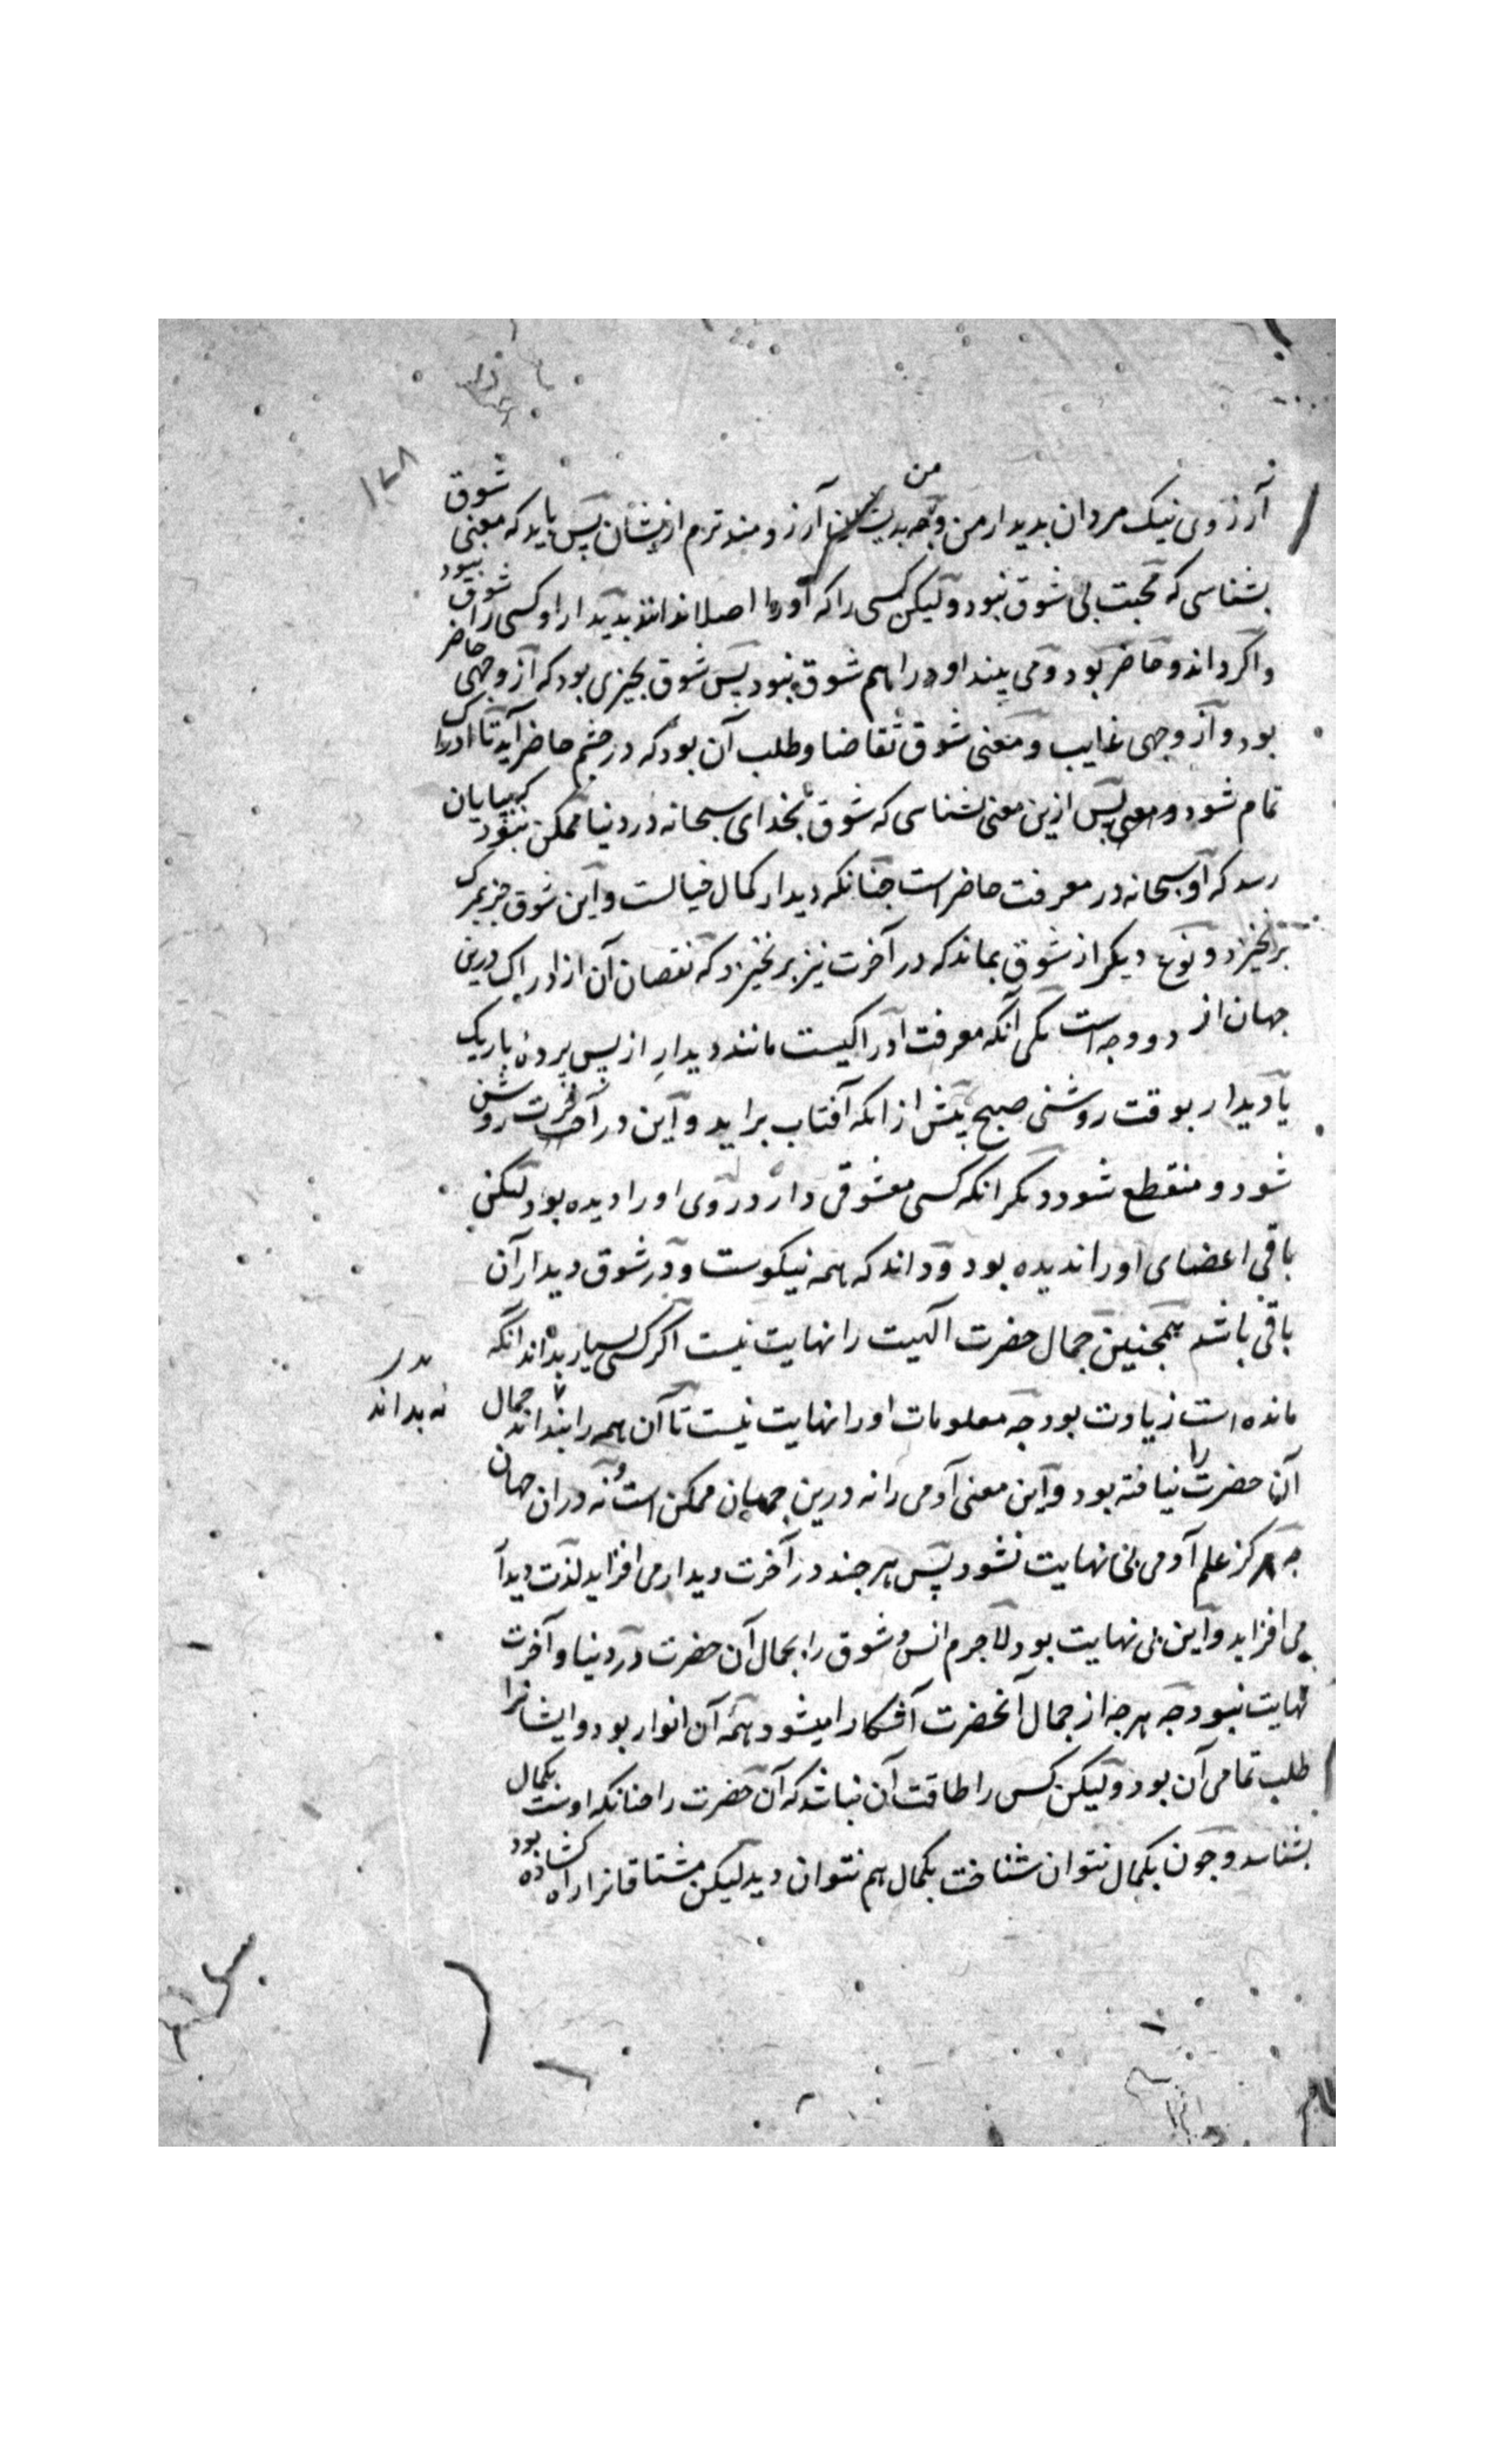 ۱۷۸
آرزوی نیک مردان بدیدار من و من بدیشان آرزومندترم از یشان پس باید که معنی شوق
بشناسی که محبت بی شوق نبود ولیکن کسی را که او را اصلا ندانند بدیدار او کسی را شوق نبود
واکر داند و حاضر بود و می بیند او را هم شوق نبود پس شوق بچیزی بود که از وجهی حاضر
بود و از وجهی غایب و معنی شوق تقاضا و طلب آن بود که در چشم حاضر آید تا ادراک
تمام شود و پس ازین معنی بشناسی که شوق بخدای سبحانه در دنیا ممکن نبود که بپایان
رسد که او سبحانه در معرفت حاضر است چنانکه دیدار کمال خیالست و این شوق جز بمرک
برنخیزد و نوع دیکر از شوق بماند که در آخرت نیز برنخیزد که نقصان آن از ادراک درین
جهان از دو وجه است یکی آنکه معرفت ادراکیست مانند دیدار از پس پرده باریک
یا دیدار بوقت روشنی صبح پیش از انکه آفتاب براید و این در آخرت روشن
شود و منقطع شود دیکر انکه کسی معشوقی دارد روی او را دیده بود لیکن
باقی اعضای او را ندیده بود و داند که همه نیکوست و در شوق دیدار آن
باقی باشد همچنین جمال حضرت الهیت را نهایت نیست اکر کسی بسیار بداند انکه
مانده است زیادت بود چه معلومات او را نهایت نیست تا آن همه را بنداند جمال
نه بداند
آن حضرت را نیافته بود و این معنی آدمی را نه درین جهان ممکن است و نه دران جهان
چه هرکز علم آدمی بی نهایت نشود پس هر چند در آخرت دیدار می افزاید لذت دیدا
می افزاید و این بی نهایت بود لاجرم انس و شوق را بجمال آن حضرت در دنیا و آخرت
نهایت نبود چه هرچه از جمال آنحضرت آشکارا میشود همه آن انوار بود و ایشانرا
طلب تمامی آن بود ولیکن کس را طاقت آن نباشد که آن حضرت را چنانکه اوست بکمال
بشناسد و چون بکمال نتوان شناخت بکمال هم نتوان دید لیکن مشتاقانرا راه کشاده بود